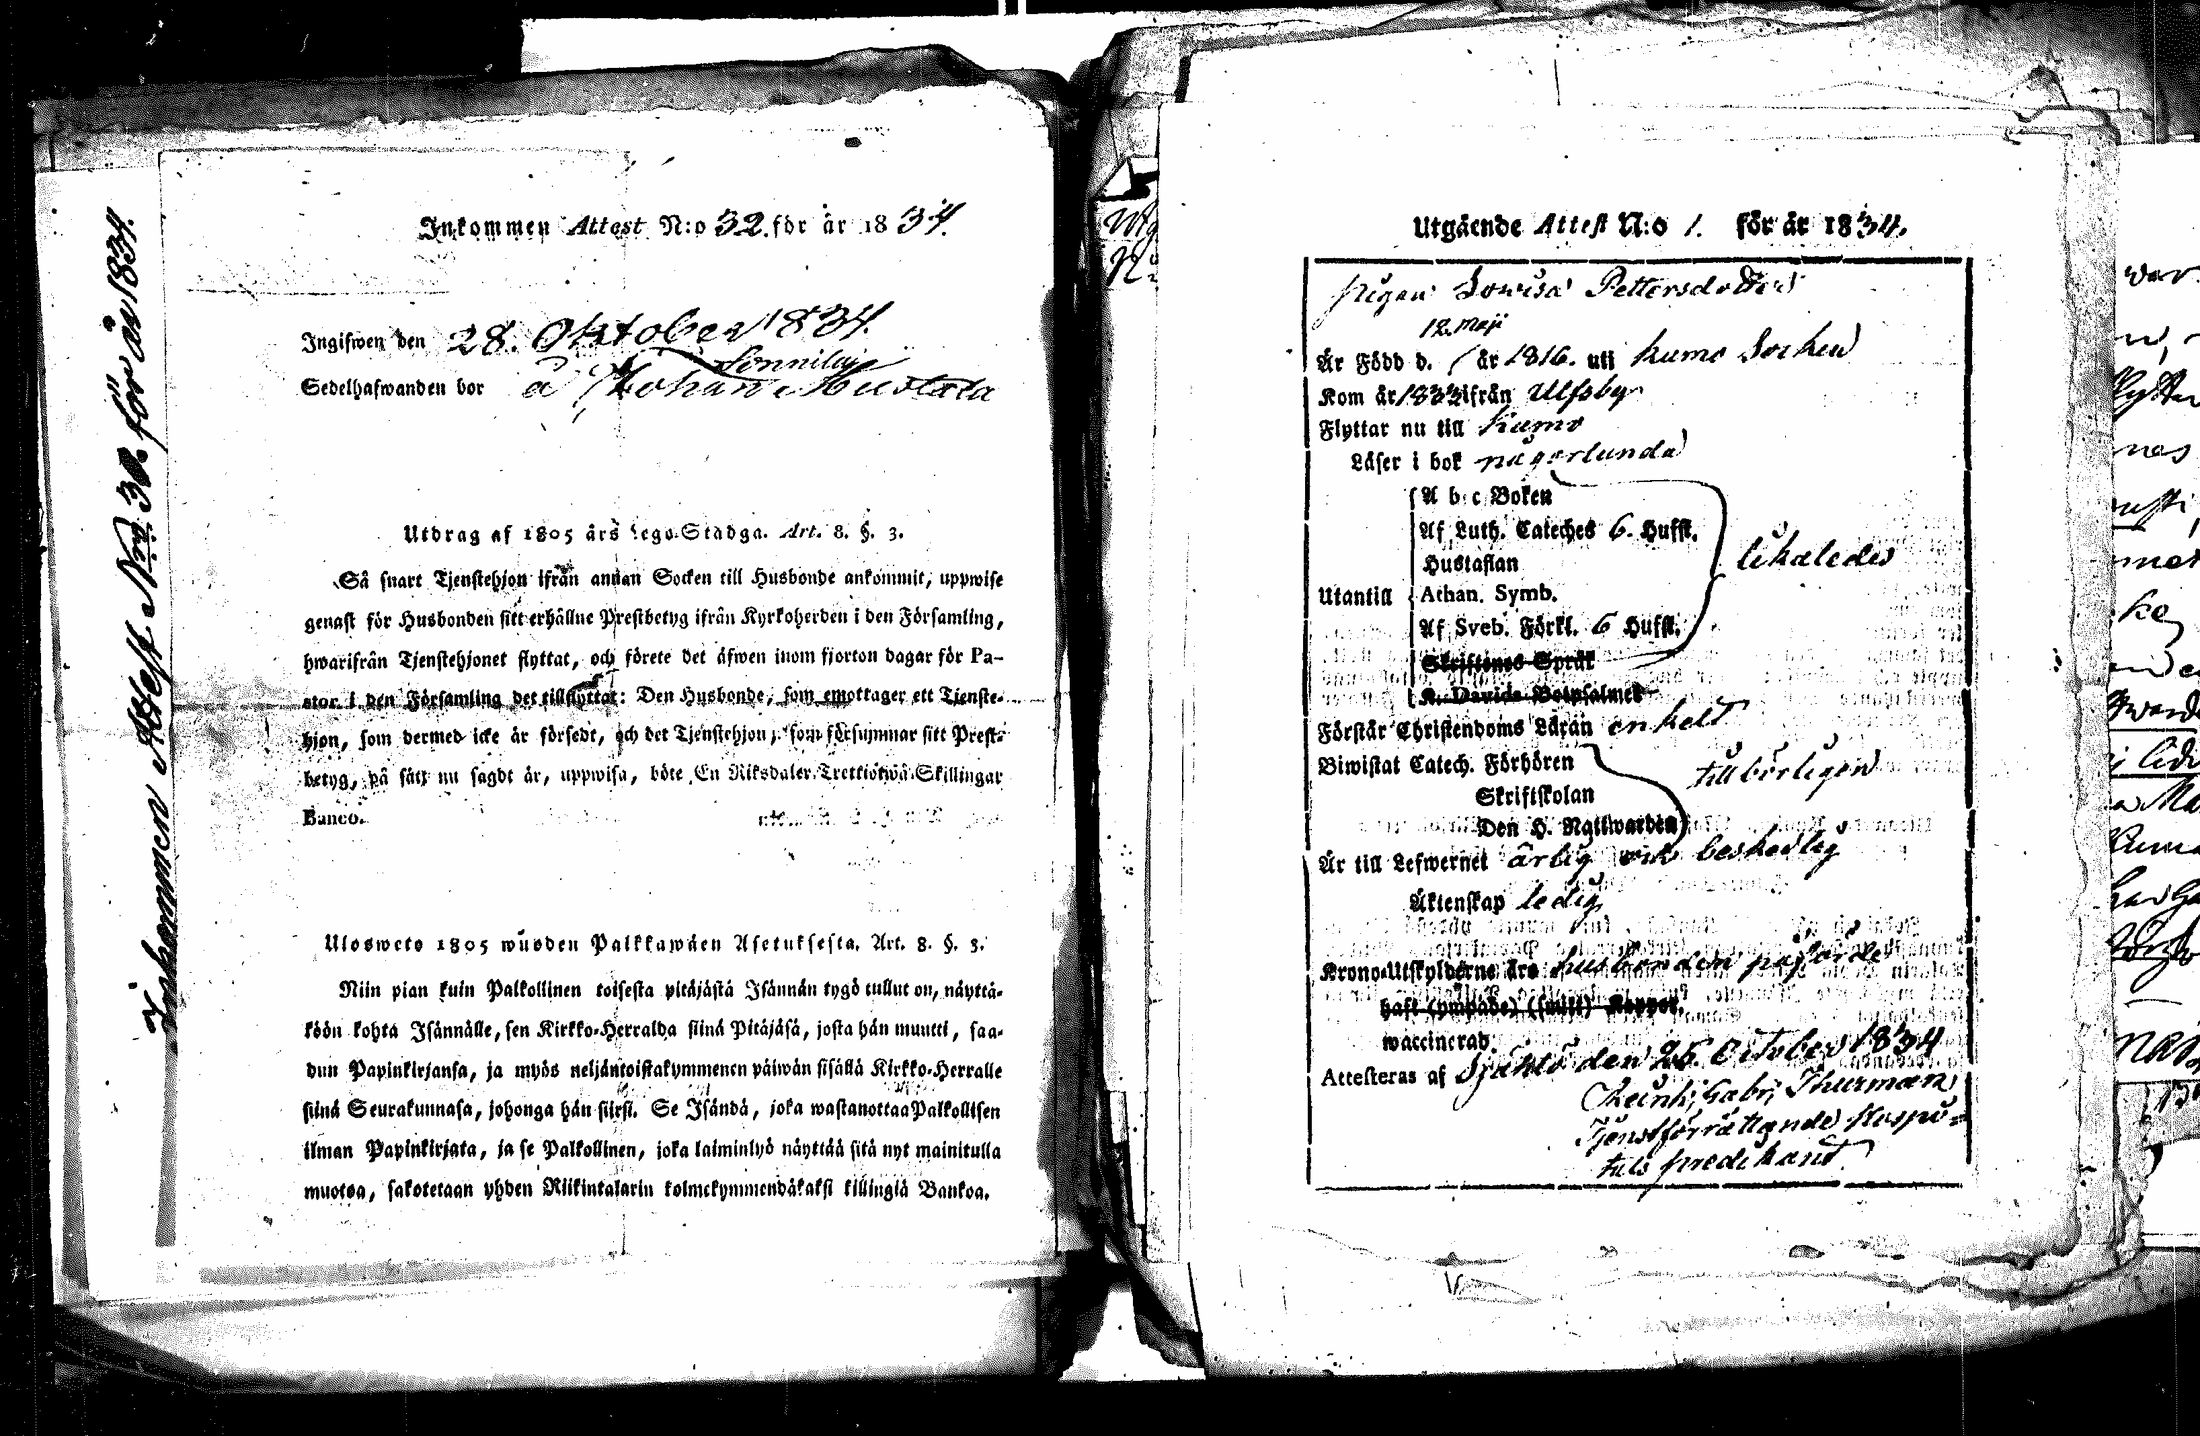 Inkommen Attest Nro 30. för år 1834.
Inkommen Attest N:o 32. för år 1834.
Ingifwen den 28. Oktober 1834.
Sonnila
Sedelhafwanden bor å Johan Mustala
Utdrag af 1805 års Lego-Stadga. Art. 8. §. 3.
Så snart Tjenstehjon ifrån annan Socken till Husbonde ankommit, uppwise
genast för Husbonden sitt erhållne Prestbetyg ifrån Kyrkoherden i den Församling,
hwarifrån Tjenstehjonet flyttat, och förete det äfwen inom fjorton dagar för Pa-
stor i den Församling det tillflyttat: Den Husbonde, som emottager ett Tjenste-
hjon, som dermed icke är försedt, och det Tjenstehjon, som försummar sitt Prest-
betyg, på sätt nu sagdt är, uppwisa, böte En Riksdaler Trettiotwå Skillingar
Banco.
Ulosweto 1805 wuoden Palkkawäen Asetuksesta. Art. 8. §. 3.
Niin pian kuin Palkollinen toisesta pitäjästä Isännän tygö tullut on, näyttä-
köön kohta Isännälle, sen Kirkko-Herralda siinä Pitäjäsä, josta hän muutti, saa-
dun Papinkirjansa, ja myös neljäntoistakymmenen päiwän sisällä Kirkko-Herralle
siinä Seurakunnasa, johonga hän siirsi. Se Isändä, joka wastanottaa Palkollisen
ilman Papinkirjata, ja se Palkollinen, joka laiminlyö näyttää sitä nyt mainitulla
muotoa, sakotetaan yhden Riikintalarin kolmekymmendäkaksi killingiä Bankoa.
Utgående Attest N:o 1. för år 1834.
Pigan Lowisa Pettersdotter
12. Maji
Är Född d. / år 1816. uti Kumo Socken
Kom år 1833 ifrån Ulfsby
Flyttar nu till Kumo
Läser i bok någorlunda
A b c Boken
Af Luth. Cateches 6. Hufst.
Hustaflan likaledes
Utantill Athan. Symb.
Af Sveb. Förkl. 6 Hufst.
Skriftenes Språk
K. Davids Botpsalmer
Förstår Christendoms Läran enkelt
Biwistat Catech. Förhören tillbörligen
Skriftskolan
Den H. Nattwarden
Är till Lefwernet ärlig och beskedlig
Äktenskap ledig
Krono-Utskylderne äro husbonden påförde
haft (ympade) (smitt) Koppor,
waccinerad
Attesteras af Sjählö den 26. October 1834
Henr: Gabr: Thurman
Tjenstförrättande Hospi-
tals predikant